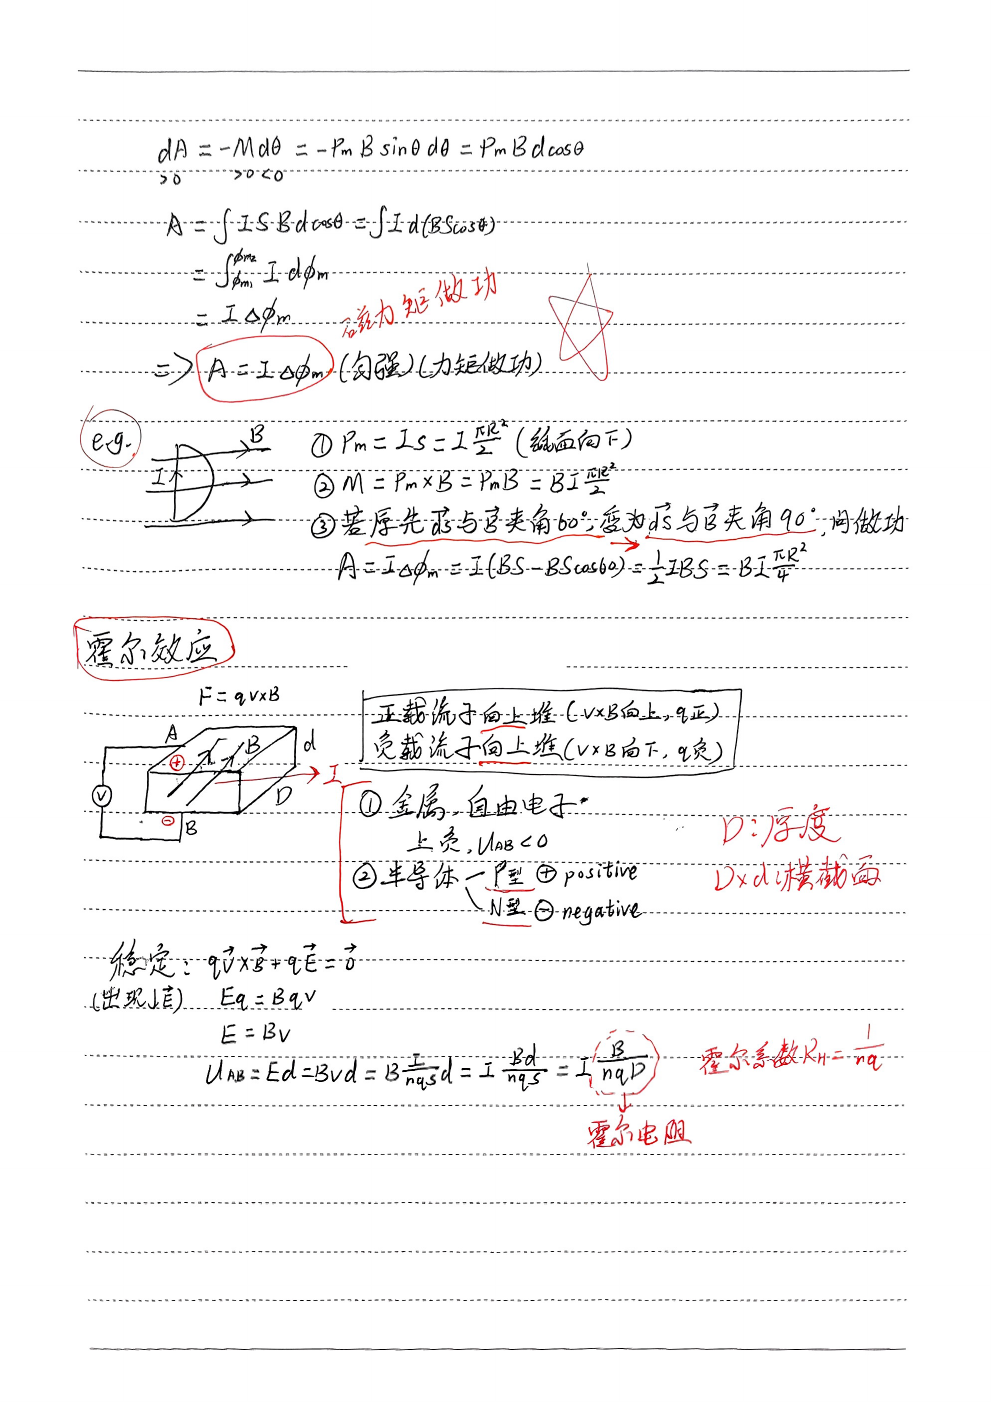 dA = -Mdθ = -PmB sinθdθ = PmBdcosθ
>0 >0 <0
A = ∫ISBdcosθ = ∫Id(BScosθ)
= ∫_{ϕm1}^{ϕm2} I dϕm
= IΔϕm
磁力矩做功
=> A = IΔϕm (匀强)(力矩做功)
e.g.
B
I
① Pm = IS = I πR²/2 (纸面向下)
② M = Pm×B = PmB = BI πR²/2
③ 若原先 d\vec{S} 与 \vec{B} 夹角60°, 变为 d\vec{S} 与 \vec{B} 夹角90°, 问做功
A = IΔϕm = I(BS-BScos60) = 1/2 IBS = BI πR²/4
霍尔效应
F = qv×B
正载流子向上堆 (v×B向上, q正)
负载流子向上堆 (v×B向下, q负)
A
B
d
D
I
V
⊕
⊖
B
① 金属, 自由电子
上负, U_{AB}<0
② 半导体 — P型 ⊕ positive
N型 ⊖ negative
D: 厚度
D×d: 横截面
稳定: q\vec{v}×\vec{B}+q\vec{E}=\vec{0}
(出现↓\vec{E}) Eq = Bqv
E = Bv
U_{AB} = Ed = Bvd = B I/nqS d = I Bd/nqS = I B/nqD
霍尔系数 R_H = 1/nq
霍尔电阻